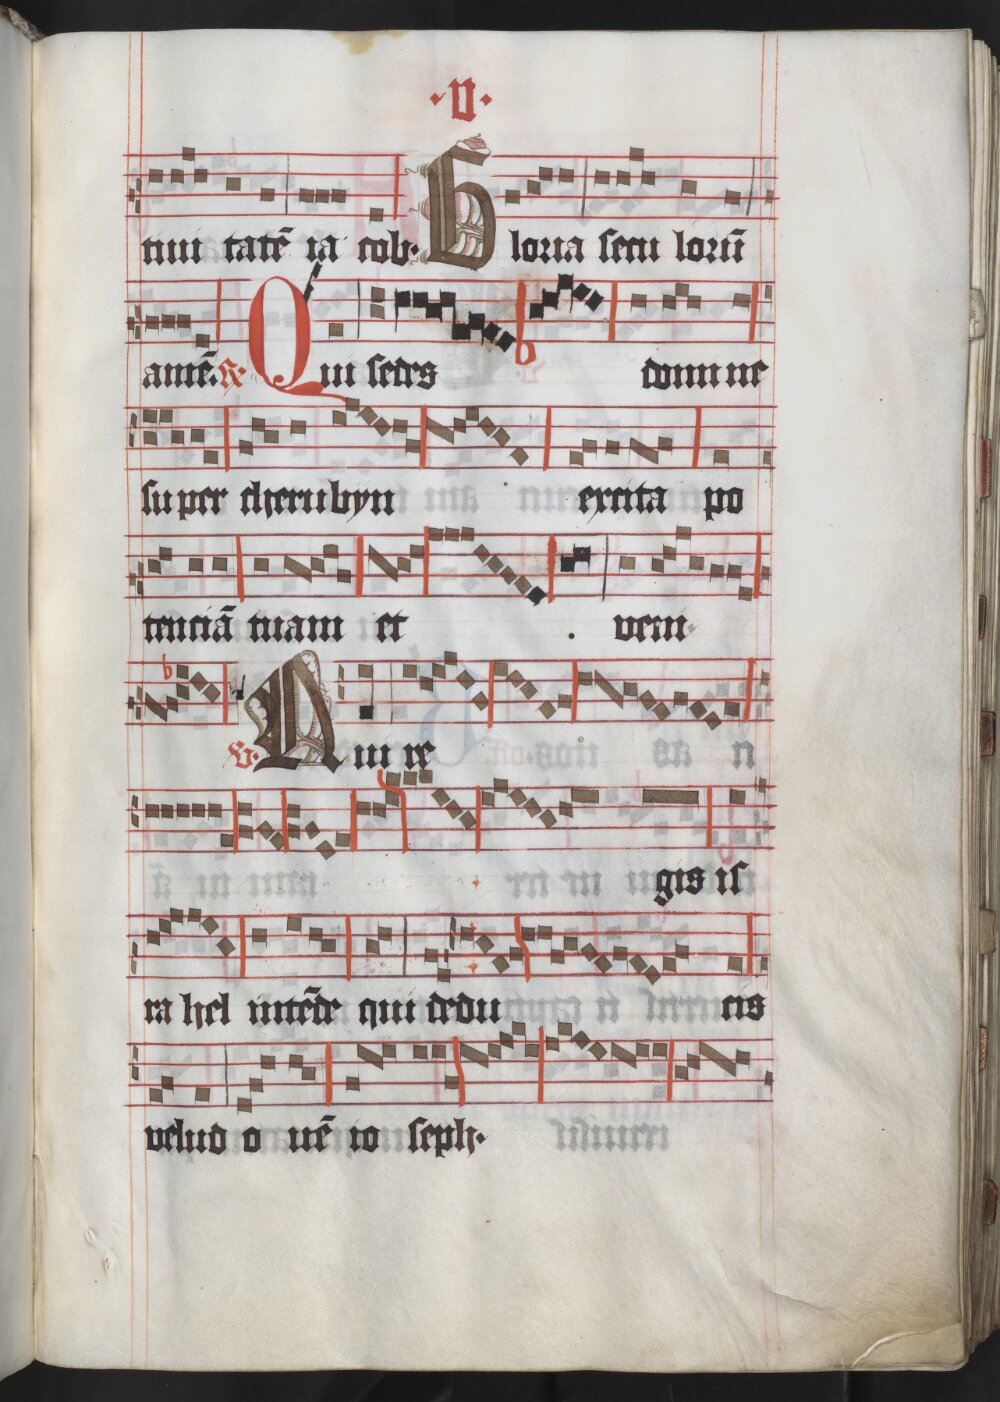 ·v·
tiui tatē ia cob· Gloria secu lorū
amē. R· Qui sedes domine
super cherubyn excita po
tenciā tuam et veni·
V· Qui re
gis is
ra hel intēde qui dedu cis
velud o uē io seph·